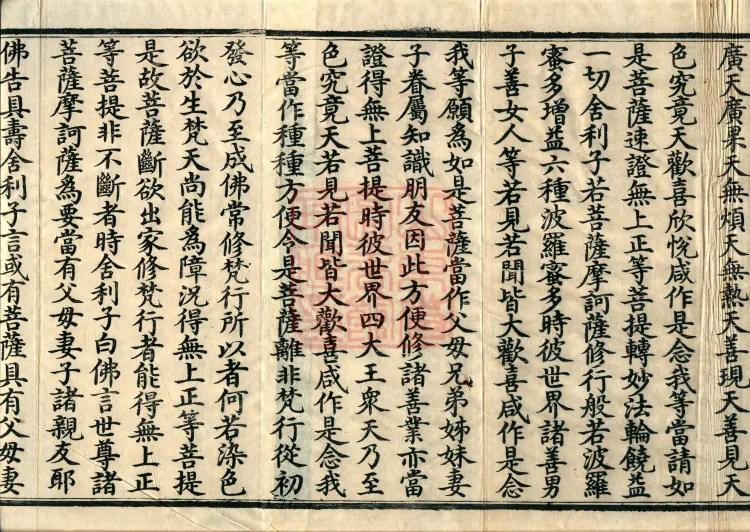 廣天廣果天無煩天無熱天善現天善見天
色究竟天歡喜欣悅咸作是念我等當請如
是菩薩速證無上正等菩提轉妙法輪饒益
一切舍利子若菩薩摩訶薩修行般若波羅
蜜多增益六種波羅蜜多時彼世界諸善男
子善女人等若見若聞皆大歡喜咸作是念
我等願為如是菩薩當作父母兄弟姊妹妻
子眷屬知識朋友因此方便修諸善業亦當
證得無上菩提時彼世界四大王衆天乃至
色究竟天若見若聞皆大歡喜咸作是念我
等當作種種方便令是菩薩離非梵行從初
發心乃至成佛常修梵行所以者何若染色
欲於生梵天尚能為障況得無上正等菩提
是故菩薩斷欲出家修梵行者能得無上正
等菩提非不斷者時舍利子白佛言世尊諸
菩薩摩訶薩為要當有父母妻子諸親友耶
佛告具壽舍利子言或有菩薩具有父母妻